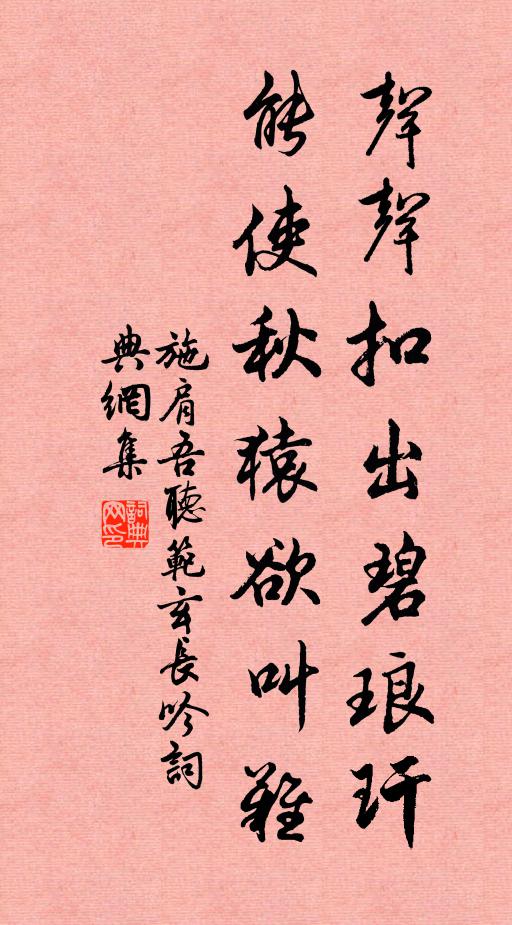 聲聲扣出碧琅玕
能使秋猿欲叫難
施肩吾聽範玄長吟詞
典網集
詞典网印